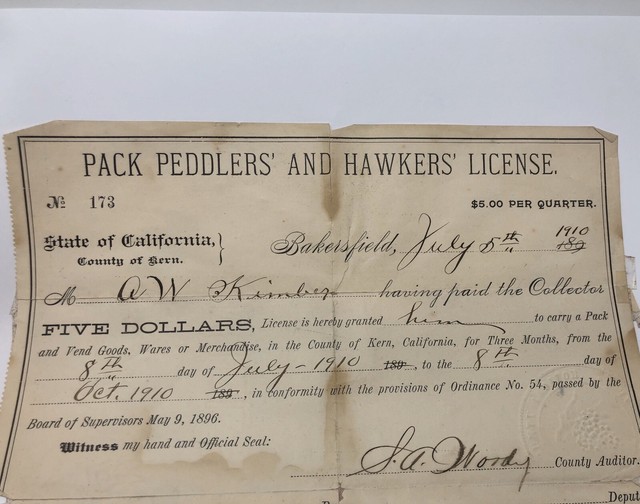 PACK PEDDLERS' AND HAWKERS' LICENSE.
№ 173
$5.00 PER QUARTER.
State of California,
County of Kern.
Bakersfield, July 5th 1910 189
M A W Kimber having paid the Collector
FIVE DOLLARS, License is hereby granted him to carry a Pack
and Vend Goods, Wares or Merchandise, in the County of Kern, California, for Three Months, from the
8th day of July - 1910 189 , to the 8th day of
Oct. 1910 189 , in conformity with the provisions of Ordinance No. 54, passed by the
Board of Supervisors May 9, 1896.
Witness my hand and Official Seal:
S. A. Woody County Auditor.
Deput